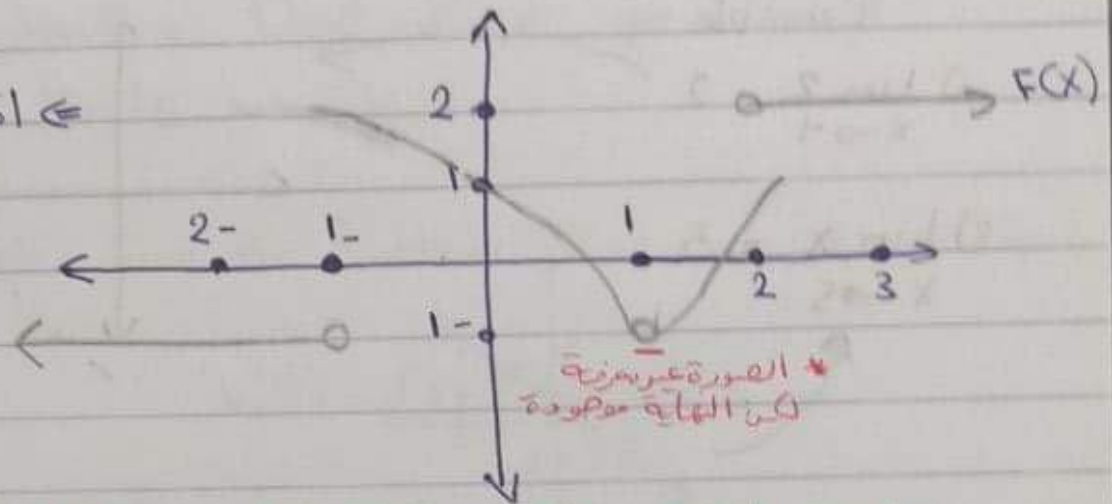 F(X)
2
1
2- 1- 1
2 3
1-
* الصورة غير معرفة
لكن النهاية موجودة